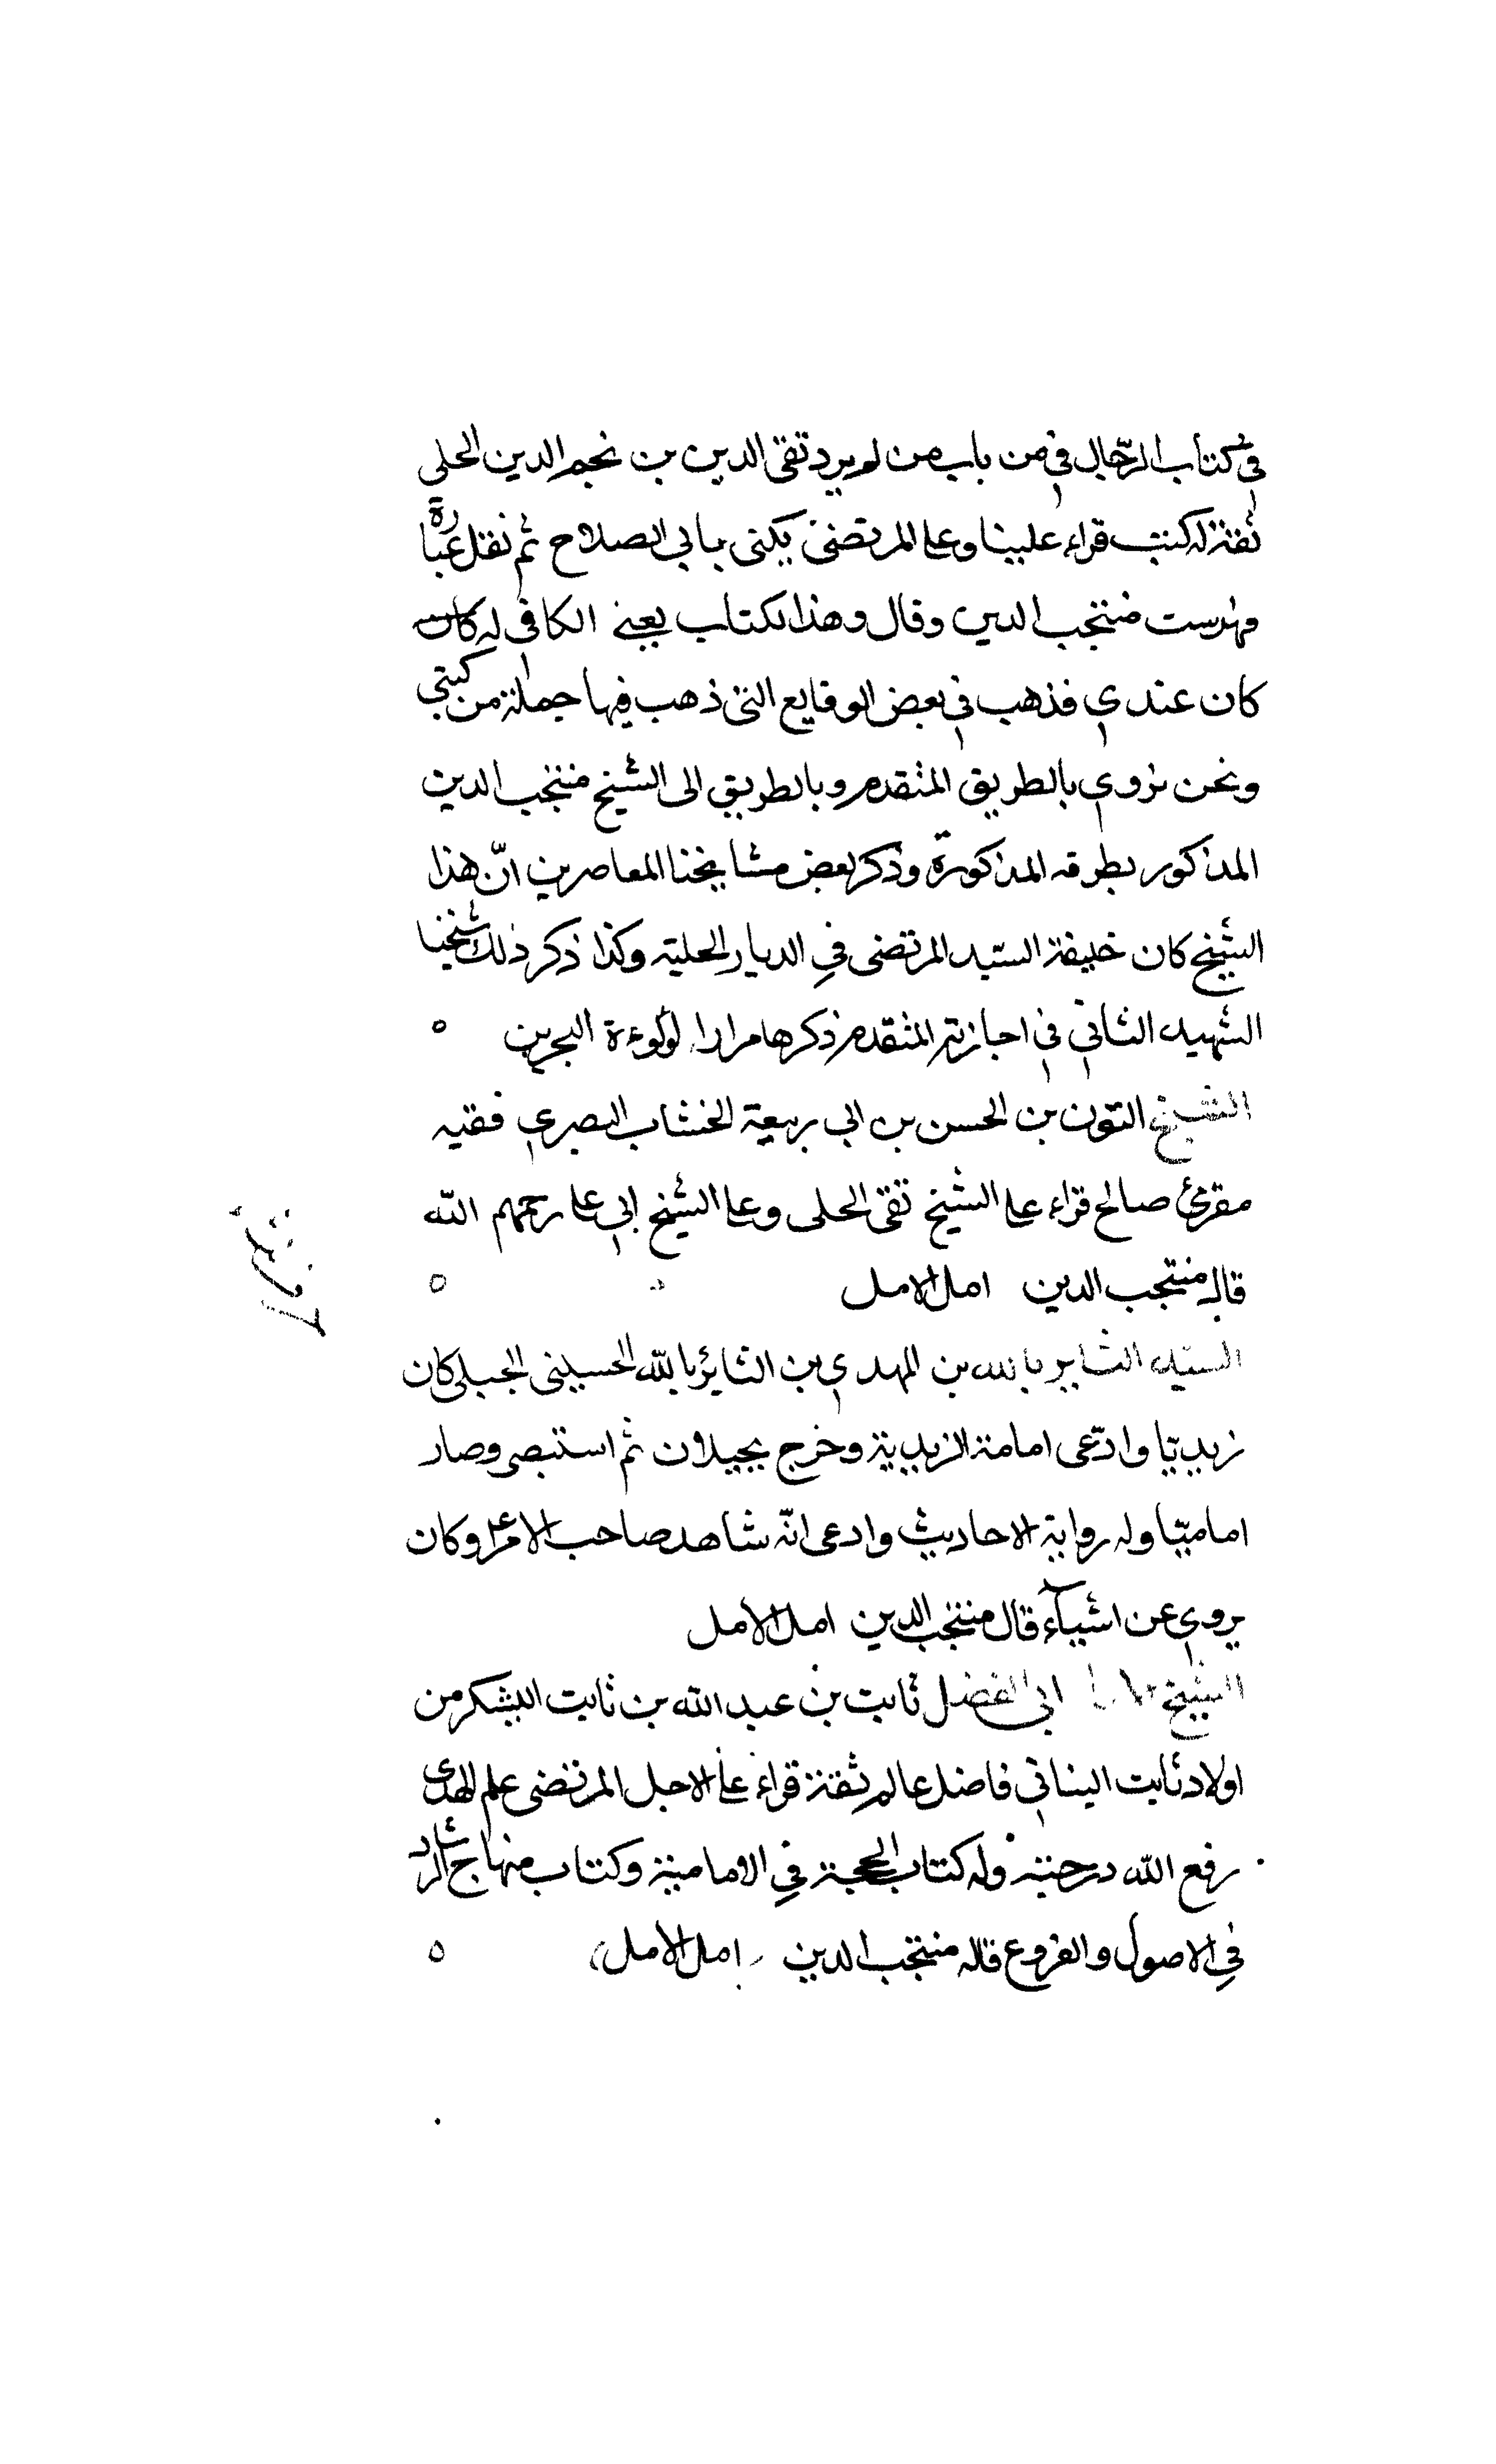 في كتاب الرّجال في من باب من لم يرد تقى الدين بن نجم الدين الحلى
ثقة له كتب قراء علينا وعلى المرتضى يكنى بابي الصلاح ثم نقل عبارة
فهرست منتجب الدين وقال وهذا الكتاب يعني الكافي له كان
كان عندي فذهب في بعض الوقايع التى ذهب فيها جملة من كتبي
ونحن نروي بالطريق المتقدم وبالطريق الى الشيخ منتجب الدين
المذكور بطرقه المذكورة وذكر بعض مشايخنا المعاصرين انّ هذا
الشيخ كان خليفة السيّد المرتضى في الديار الحلية وكذا ذكر ذلك شيخنا
الشهيد الثاني في اجازته المتقدم ذكرها مرارا لؤلوءة البحرين ٥
الشيخ التون بن الحسن بن ابي ربيعة الخشاب البصري فقيه
مقرئ صالح قراء على الشيخ تقى الحلى وعلى الشيخ ابي على رحمهم الله
قاله منتجب الدين امل الامل ٥
السيّد الثاير بالله بن المهدي بن الثائر بالله الحسيني الجبلي كان
زيديّا وادّعى امامة الزيدية وخرج بجيلان ثم استبصر وصار
اماميّا وله رواية الاحاديث وادعى انّه شاهد صاحب الامر ع وكان
يروي عن اشيآء قال منتجب الدين امل الامل
الشيخ ابي الفضل ثابت بن عبد الله بن ثابت اليشكر من
اولاد ثابت البناني فاضل عالم ثقة قراء على الاجل المرتضى علم الهدى
رفع الله درجته وله كتاب الحجة في الامامية وكتاب منهاج الرشاد
في الاصول والفروع قاله منتجب الدين امل الامل ٥